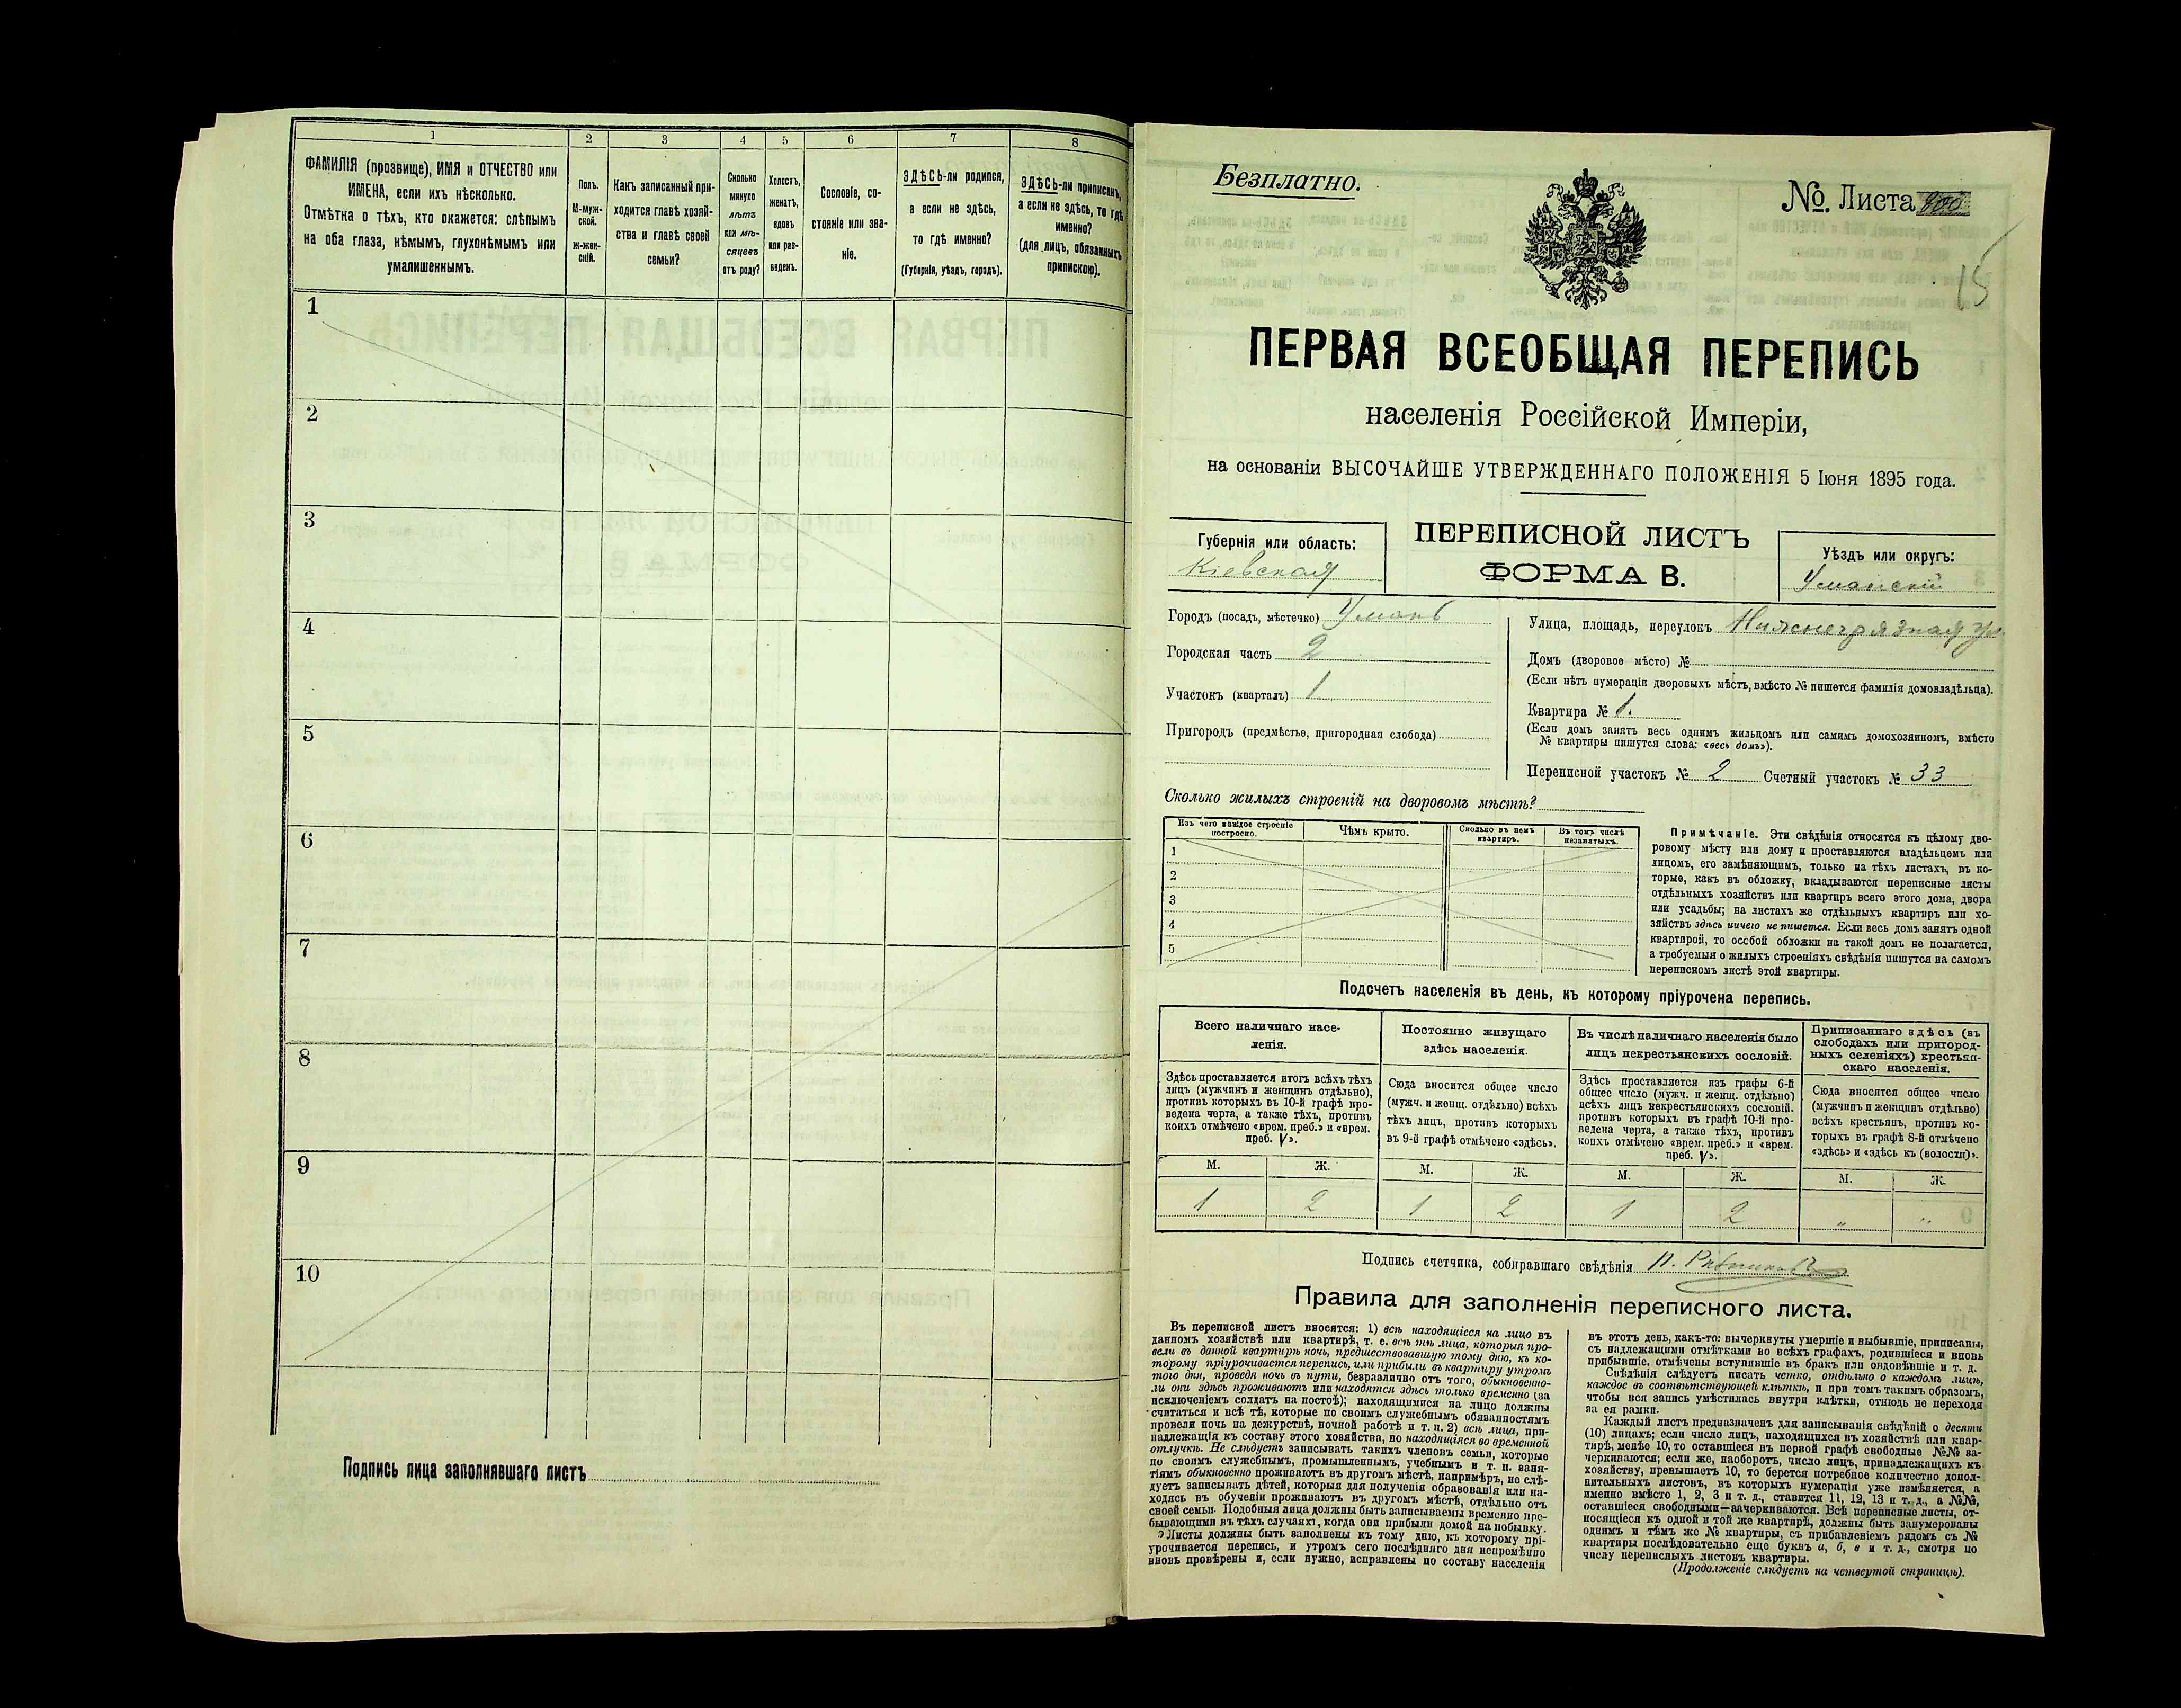 1 2 3 4 5 6 7 8
ФАМИЛІЯ (прозвище), ИМЯ и ОТЧЕСТВО или
ИМЕНА, если ихъ нѣсколько.
Отмѣтка о тѣхъ, кто окажется: слѣпымъ
на оба глаза, нѣмымъ, глухонѣмымъ или
умалишеннымъ.
Полъ.
М-муж-
ской.
ж-жен-
скій.
Какъ записанный при-
ходится главѣ хозяй-
ства и главѣ своей
семьи?
Сколько
минуло
лѣтъ
или мѣ-
сяцевъ
отъ роду?
Холостъ,
женатъ,
вдовъ
или раз-
веденъ.
Сословіе, со-
стояніе или зва-
ніе.
ЗДѢСЬ-ли родился,
а если не здѣсь,
то гдѣ именно?
(Губернія, уѣздъ, городъ).
ЗДѢСЬ-ли приписанъ,
а если не здѣсь, то гдѣ
именно?
(для лицъ, обязанныхъ
припискою).
1
2
3
4
5
6
7
8
9
10
Подпись лица заполнявшаго листъ
Безплатно.
№. Листа
15
ПЕРВАЯ ВСЕОБЩАЯ ПЕРЕПИСЬ
населенія Россійской Имперіи,
на основаніи ВЫСОЧАЙШЕ УТВЕРЖДЕННАГО ПОЛОЖЕНІЯ 5 Іюня 1895 года.
Губернія или область:
Кіевская
ПЕРЕПИСНОЙ ЛИСТЪ
ФОРМА В.
Уѣздъ или округъ:
Уманскій
Городъ (посадъ, мѣстечко) Умань
Городская часть 2
Участокъ (кварталъ) 1
Пригородъ (предмѣстье, пригородная слобода)
Улица, площадь, переулокъ Нижнегрязная ул.
Домъ (дворовое мѣсто) №
(Если нѣтъ нумераціи дворовыхъ мѣстъ, вмѣсто № пишется фамилія домовладѣльца).
Квартира № 1.
(Если домъ занятъ весь однимъ жильцомъ или самимъ домохозяиномъ, вмѣсто
№ квартиры пишутся слова: «весь домъ»).
Переписной участокъ № 2 Счетный участокъ № 33
Сколько жилыхъ строеній на дворовомъ мѣстѣ?
Изъ чего каждое строеніе
построено.
Чѣмъ крыто.
Сколько въ немъ
квартиръ.
Въ томъ числѣ
незанятыхъ.
1
2
3
4
5
Примѣчаніе. Эти свѣдѣнія относятся къ цѣлому дво-
ровому мѣсту или дому и проставляются владѣльцемъ или
лицомъ, его замѣняющимъ, только на тѣхъ листахъ, въ ко-
торые, какъ въ обложку, вкладываются переписные листы
отдѣльныхъ хозяйствъ или квартиръ всего этого дома, двора
или усадьбы; на листахъ же отдѣльныхъ квартиръ или хо-
зяйствъ здѣсь ничего не пишется. Если весь домъ занятъ одной
квартирой, то особой обложки на такой домъ не полагается,
а требуемыя о жилыхъ строеніяхъ свѣдѣнія пишутся на самомъ
переписномъ листѣ этой квартиры.
Подсчетъ населенія въ день, къ которому пріурочена перепись.
Всего наличнаго насе-
ленія.
Здѣсь проставляется итогъ всѣхъ тѣхъ
лицъ (мужчинъ и женщинъ отдѣльно),
противъ которыхъ въ 10-й графѣ про-
ведена черта, а также тѣхъ, противъ
коихъ отмѣчено «врем. преб.» и «врем.
преб. V».
Постоянно живущаго
здѣсь населенія.
Сюда вносится общее число
(мужч. и женщ. отдѣльно) всѣхъ
тѣхъ лицъ, противъ которыхъ
въ 9-й графѣ отмѣчено «здѣсь».
Въ числѣ наличнаго населенія было
лицъ некрестьянскихъ сословій.
Здѣсь проставляется изъ графы 6-й
общее число (мужч. и женщ. отдѣльно)
всѣхъ лицъ некрестьянскихъ сословій.
противъ которыхъ въ графѣ 10-й про-
ведена черта, а также тѣхъ, противъ
коихъ отмѣчено «врем. преб.» и «врем.
преб. V».
Приписаннаго здѣсь (въ
слободахъ или пригород-
ныхъ селеніяхъ) крестьян-
скаго населенія.
Сюда вносится общее число
(мужчинъ и женщинъ отдѣльно)
всѣхъ крестьянъ, противъ ко-
торыхъ въ графѣ 8-й отмѣчено
«здѣсь» и «здѣсь къ (волости)».
М. Ж. М. Ж. М. Ж. М. Ж.
1 2 1 2 1 2 „ „
Подпись счетчика, собиравшаго свѣдѣнія
Правила для заполненія переписного листа.
Въ переписной листъ вносятся: 1) всѣ находящіеся на лицо въ
данномъ хозяйствѣ или квартирѣ, т. е. всѣ тѣ лица, которыя про-
вели въ данной квартирѣ ночь, предшествовавшую тому дню, къ ко-
торому пріурочивается перепись, или прибыли въ квартиру утромъ
того дня, проведя ночь въ пути, безразлично отъ того, обыкновенно-
ли они здѣсь проживаютъ или находятся здѣсь только временно (за
исключеніемъ солдатъ на постоѣ); находящимися на лицо должны
считаться и всѣ тѣ, которые по своимъ служебнымъ обязанностямъ
провели ночь на дежурствѣ, ночной работѣ и т. п. 2) всѣ лица, при-
надлежащія къ составу этого хозяйства, но находящіяся во временной
отлучкѣ. Не слѣдуетъ записывать такихъ членовъ семьи, которые
по своимъ служебнымъ, промышленнымъ, учебнымъ и т. п. заня-
тіямъ обыкновенно проживаютъ въ другомъ мѣстѣ, напримѣръ, не слѣ-
дуетъ записывать дѣтей, которыя для полученія образованія или на-
ходясь въ обученіи проживаютъ въ другомъ мѣстѣ, отдѣльно отъ
своей семьи. Подобныя лица должны быть записываемы временно пре-
бывающими въ тѣхъ случаяхъ, когда они прибыли домой на побывку.
Листы должны быть заполнены къ тому дню, къ которому прі-
урочивается перепись, и утромъ сего послѣдняго дня непремѣнно
вновь провѣрены и, если нужно, исправлены по составу населенія
въ этотъ день, какъ-то: вычеркнуты умершіе и выбывшіе, приписаны,
съ надлежащими отмѣтками во всѣхъ графахъ, родившіеся и вновь
прибывшіе, отмѣчены вступившіе въ бракъ или овдовѣвшіе и т. д.
Свѣдѣнія слѣдуетъ писать четко, отдѣльно о каждомъ лицѣ,
каждое въ соотвѣтствующей клѣткѣ, и при томъ такимъ образомъ,
чтобы вся запись умѣстилась внутри клѣтки, отнюдь не переходя
за ея рамки.
Каждый листъ предназначенъ для записыванія свѣдѣній о десяти
(10) лицахъ; если число лицъ, находящихся въ хозяйствѣ или квар-
тирѣ, менѣе 10, то оставшіеся въ первой графѣ свободные №№ за-
черкиваются; если же, наоборотъ, число лицъ, принадлежащихъ къ
хозяйству, превышаетъ 10, то берется потребное количество допол-
нительныхъ листовъ, въ которыхъ нумерація уже измѣняется, а
именно вмѣсто 1, 2, 3 и т. д., ставится 11, 12, 13 и т. д., а №№,
оставшіеся свободными—зачеркиваются. Всѣ переписные листы, от-
носящіеся къ одной и той же квартирѣ, должны быть занумерованы
однимъ и тѣмъ же № квартиры, съ прибавленіемъ рядомъ съ №
квартиры послѣдовательно еще буквъ а, б, в и т. д., смотря по
числу переписныхъ листовъ квартиры.
(Продолженіе слѣдуетъ на четвертой страницѣ).